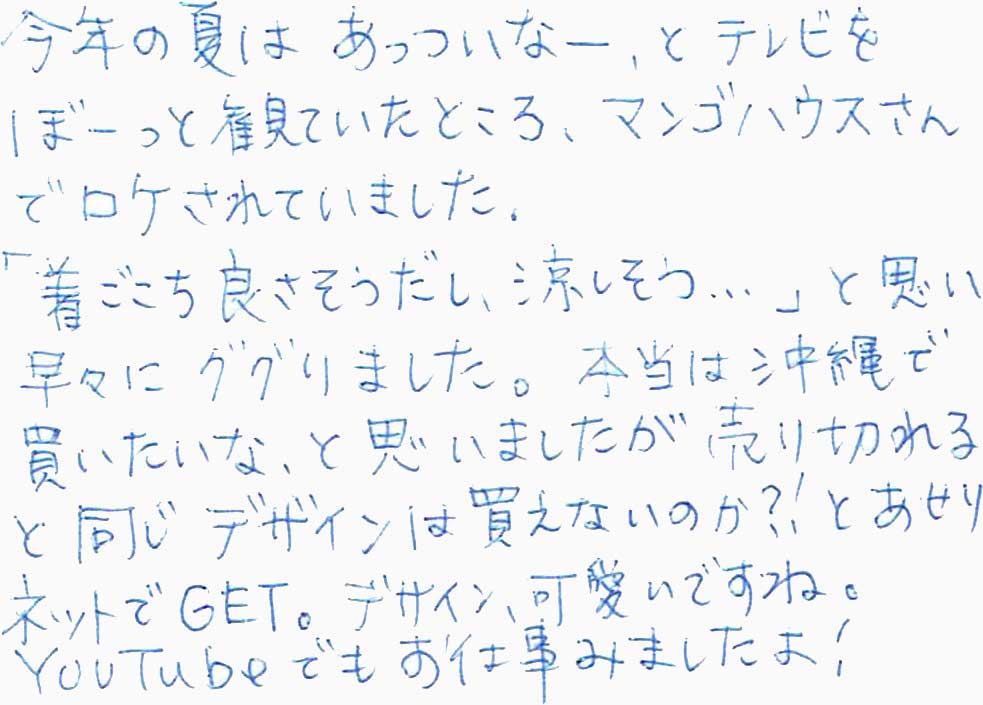 今年の夏は あっついなー、と テレビを
ぼーっと観ていたところ、マンゴハウスさん
でロケされていました。
「着ごこち良さそうだし、涼しそう…」と思い
早々に ググりました。本当は沖縄で
買いたいな、と思いましたが売り切れる
と同じデザインは買えないのか?!とあせり
ネットでGET。デザイン、可愛いですね。
YouTubeでもお仕事みましたよ!